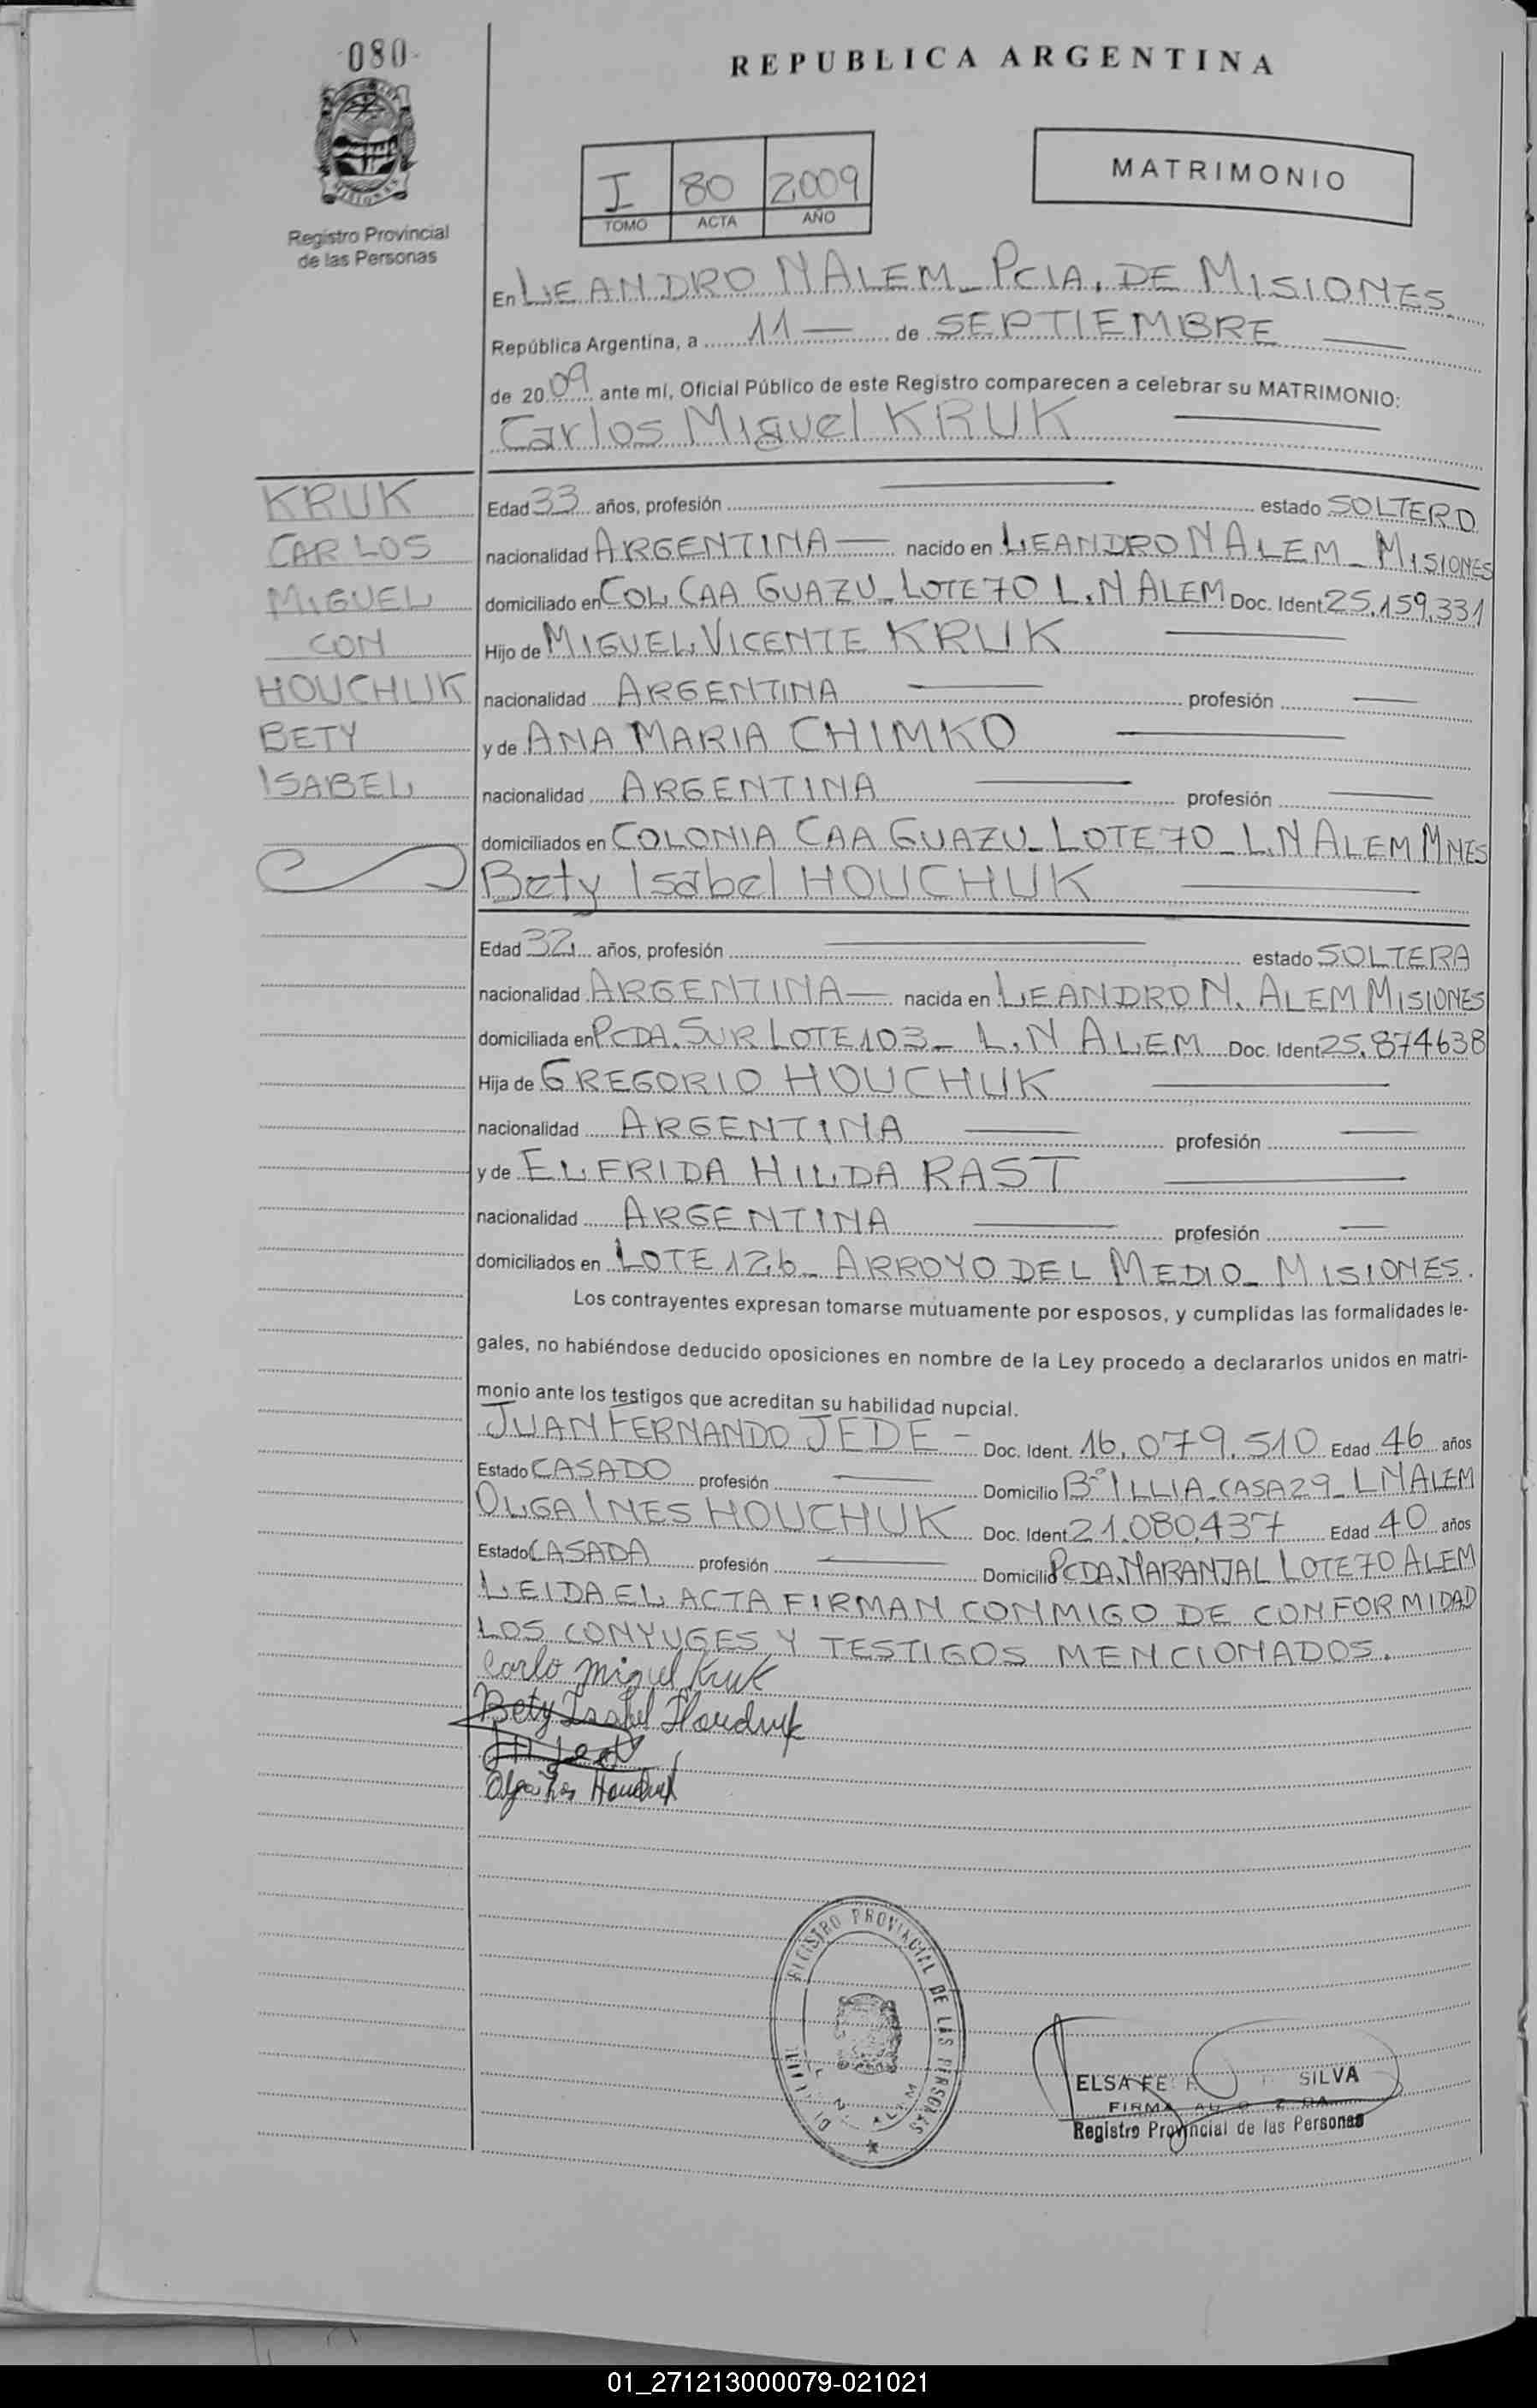 080
REPUBLICA ARGENTINA
Registro Provincial
de las Personas
I 80 2009
TOMO ACTA AÑO
MATRIMONIO
En LEANDRO N ALEM - PCIA. DE MISIONES
República Argentina, a 11 — de SEPTIEMBRE —
de 2009 ante mí, Oficial Público de este Registro comparecen a celebrar su MATRIMONIO:
Carlos Miguel KRUK —
KRUK
CARLOS
MIGUEL
CON
HOUCHUK
BETY
ISABEL
Edad 33 años, profesión — estado SOLTERO
nacionalidad ARGENTINA — nacido en LEANDRO N ALEM - MISIONES
domiciliado en COL CAA GUAZU - LOTE 70 L.N ALEM Doc. Ident 25.159.331
Hijo de MIGUEL VICENTE KRUK —
nacionalidad ARGENTINA — profesión —
y de ANA MARIA CHIMKO —
nacionalidad ARGENTINA — profesión —
domiciliados en COLONIA CAA GUAZU - LOTE 70 - L.N ALEM MNES
Bety Isabel HOUCHUK —
Edad 32 años, profesión — estado SOLTERA
nacionalidad ARGENTINA — nacida en LEANDRO N. ALEM MISIONES
domiciliada en PCDA. SUR LOTE 103 - L.N ALEM Doc. Ident 25.874638
Hija de GREGORIO HOUCHUK —
nacionalidad ARGENTINA — profesión —
y de ELFRIDA HILDA RAST —
nacionalidad ARGENTINA — profesión —
domiciliados en LOTE 126 - ARROYO DEL MEDIO - MISIONES.
Los contrayentes expresan tomarse mutuamente por esposos, y cumplidas las formalidades le-
gales, no habiéndose deducido oposiciones en nombre de la Ley procedo a declararlos unidos en matri-
monio ante los testigos que acreditan su habilidad nupcial.
JUAN FERNANDO JEDE - Doc. Ident. 16.079.510 Edad 46 años
Estado CASADO profesión — Domicilio Bº ILLIA - CASA 29 - L N ALEM
OLGA INES HOUCHUK Doc. Ident 21.080.437 Edad 40 años
Estado CASADA profesión — Domicilio PCDA. NARANJAL LOTE 70 ALEM
LEIDA EL ACTA FIRMAN CONMIGO DE CONFORMIDAD
LOS CONYUGES Y TESTIGOS MENCIONADOS.
Carlo Miguel Kruk
Bety Isabel Houchuk
Olga Ines Houchuk
REGISTRO PROVINCIAL DE LAS PERSONAS
L. N. ALEM
ELSA SILVA
FIRMA
Registro Provincial de las Personas
01_271213000079-021021